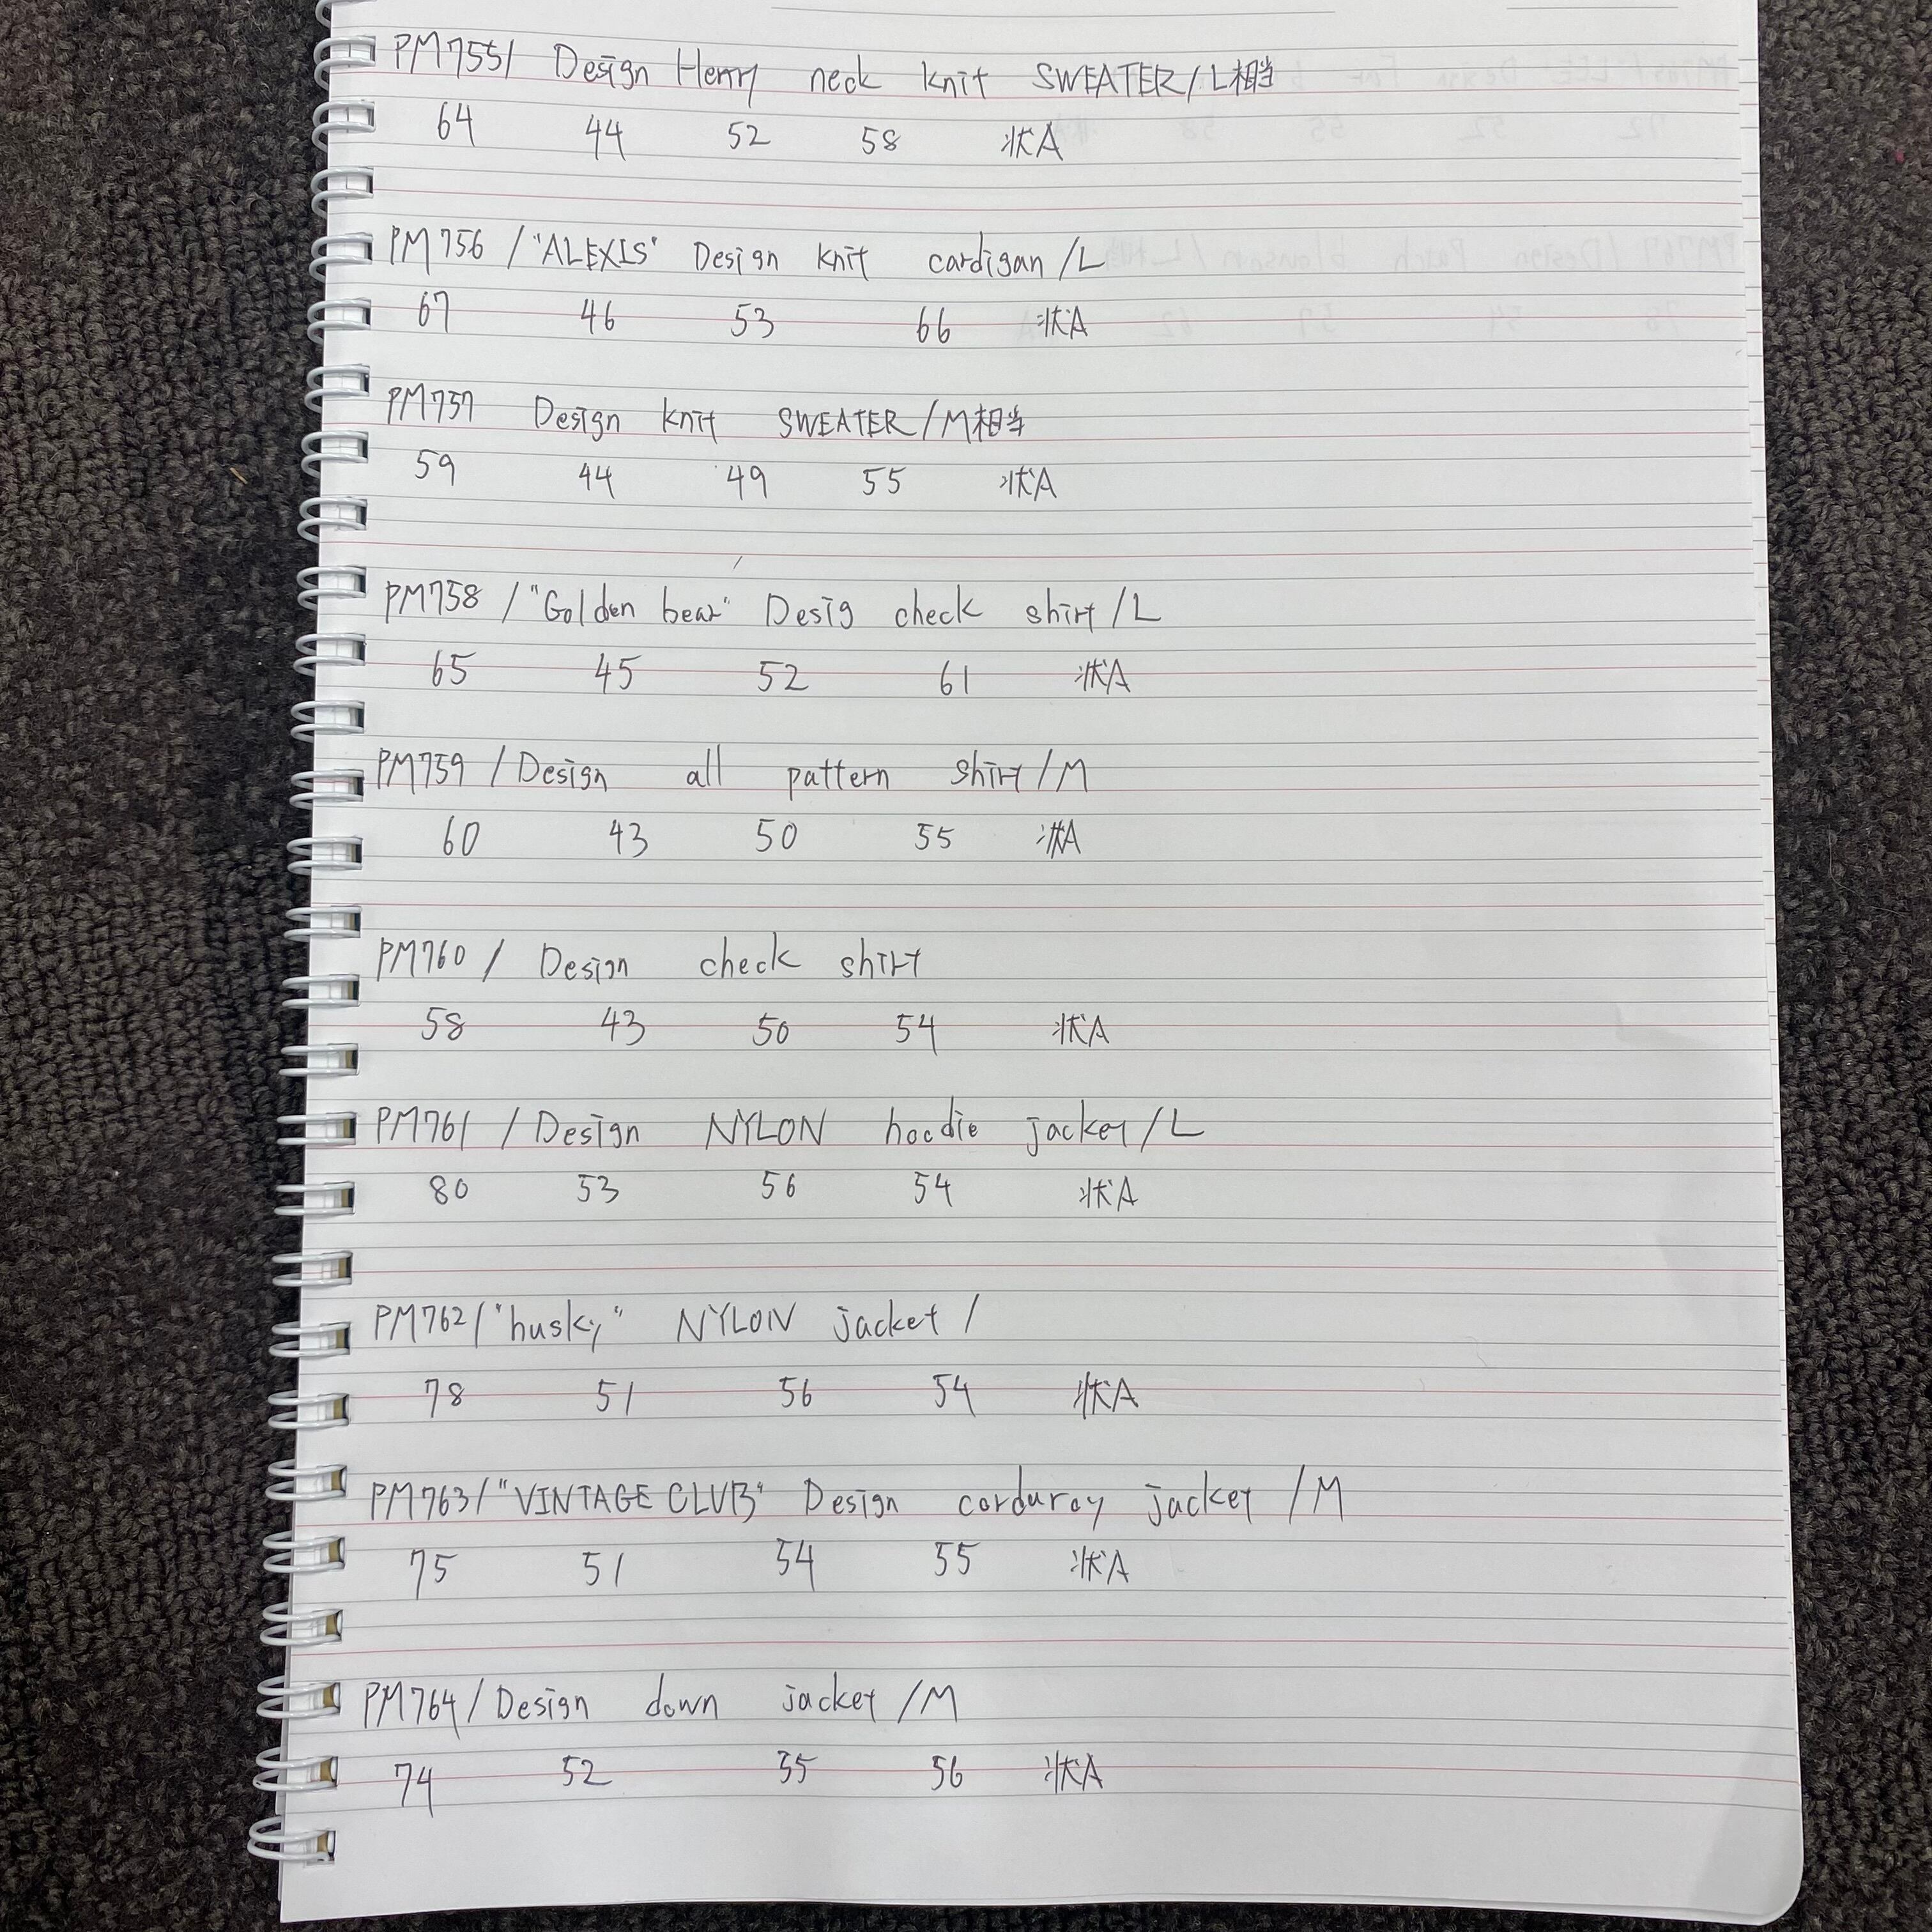 PM755/ Design Henry neck knit SWEATER/L相当
64 44 52 58 状A
PM756/"ALEXIS" Design knit cardigan/L
67 46 53 66 状A
PM757 Design knit SWEATER/M相当
59 44 49 55 状A
PM758/"Golden bear" Desig check shirt/L
65 45 52 61 状A
PM759/Design all pattern shirt/M
60 43 50 55 状A
PM760/ Design check shirt
58 43 50 54 状A
PM761/Design NYLON hoodie jacket/L
80 53 56 54 状A
PM762/"husky" NYLON jacket/
78 51 56 54 状A
PM763/"VINTAGE CLUB" Design corduroy jacket/M
75 51 54 55 状A
PM764/Design down jacket/M
74 52 55 56 状A